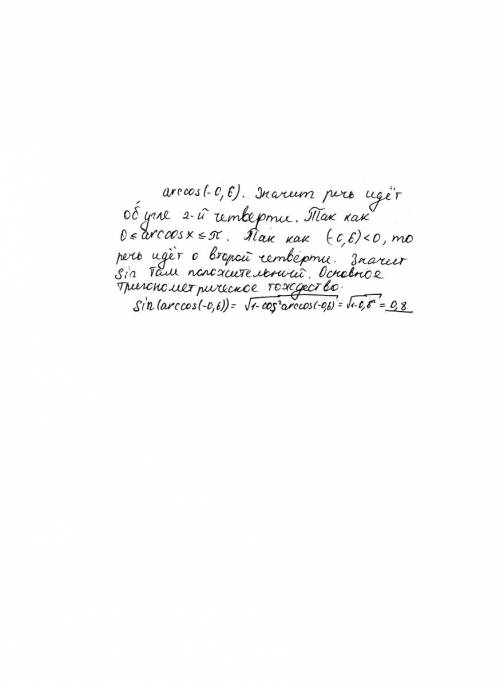 arccos(-0,6). Значит речь идёт
об угле 2-й четверти. Так как
0 ≤ arccos x ≤ π. Так как (-0,6)<0, то
речь идёт о второй четверти. Значит
Sin там положительный. Основное
тригонометрическое тождество.
Sin(arccos(-0,6)) = √1-cos²arccos(-0,6) = √1-0,6² = 0,8